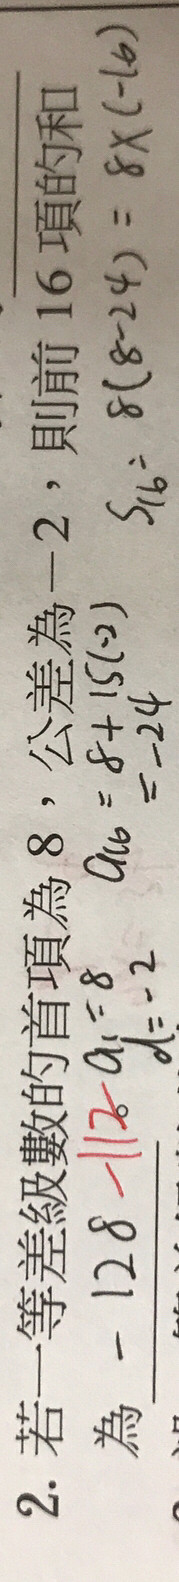 2. 若一等差級數的首項為 8，公差為－2，則前 16 項的和
為 －128 －112。
a₁=8
d=-2
a₁₆ = 8+15(-2)
= -24
S₁₆= 8(8-24) = 8×(-16)